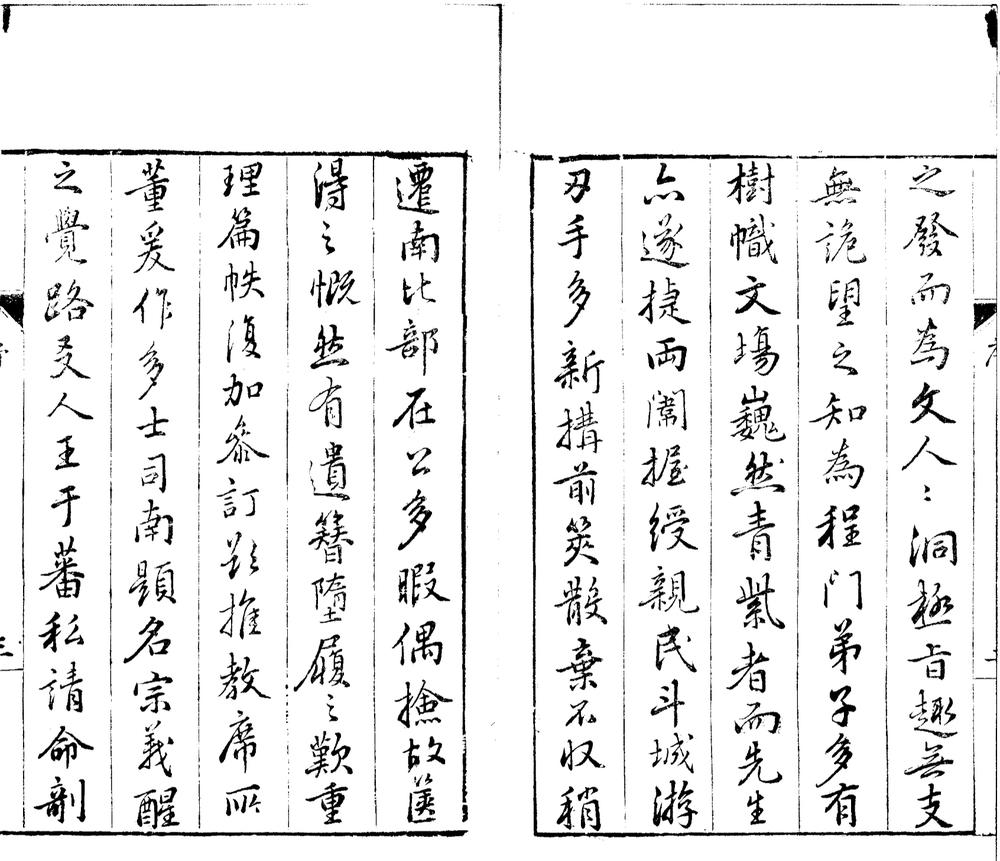 之發而為文人〻洞極旨趣無支
無詭朢之知為程門弟子多有
樹幟文塲巍然青紫者而先生
亦遂捷両闈握綬親民斗城游
刃手多新搆前筴散棄不收稍
遷南比部在公多暇偶撿故篋
得之慨然有遺簪墮履之歎重
理篇帙復加叅訂欵推教席所
董爰作多士司南題名宗義醒
之覺路友人王于蕃私請命剞